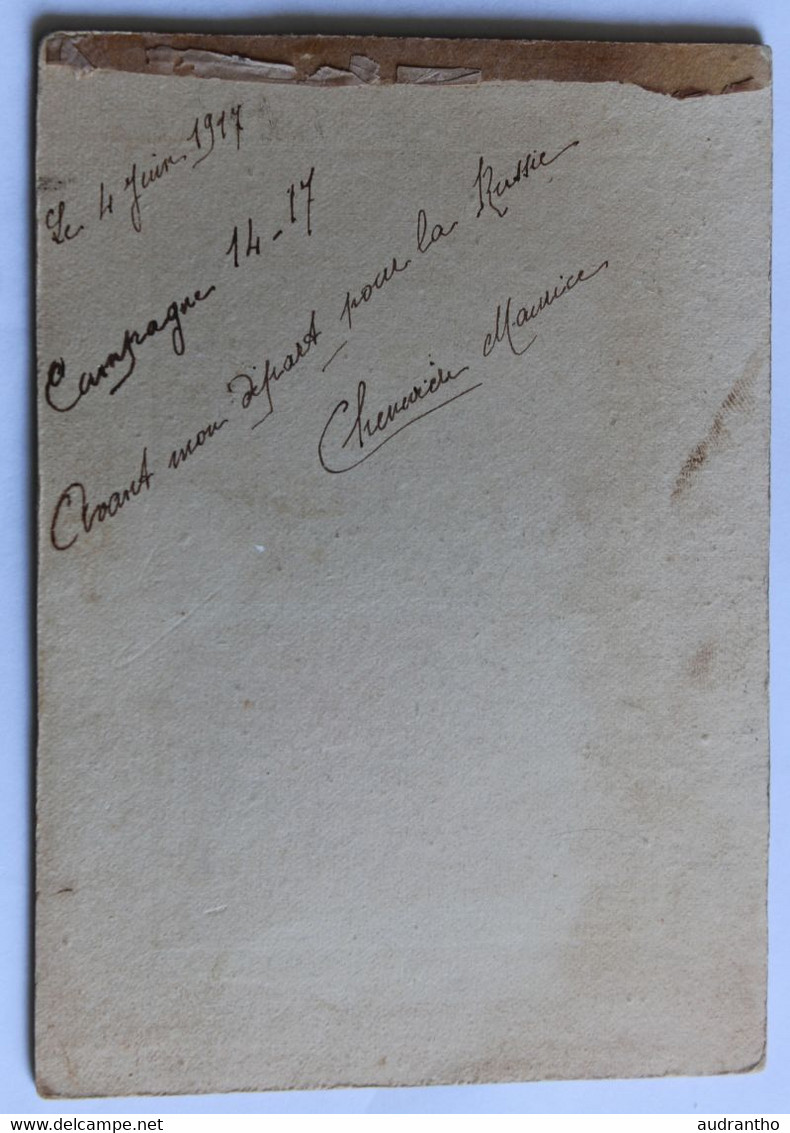 Le 4 Juin 1917
Campagne 14-17
Avant mon départ pour la Russie
Maurice
delcampe.net
audrantho